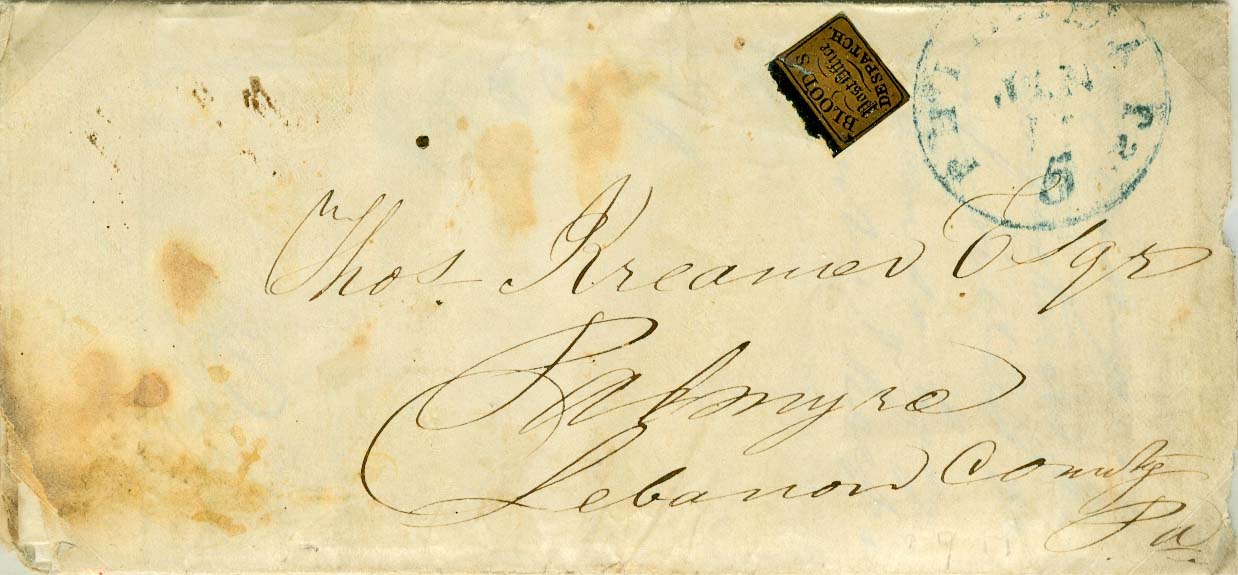 BLOOD'S
Post Office
DESPATCH.
PHILADELPHIA Pa.
JAN
5
Thos. Kreamer Esqr
Palmyra
Lebanon County
Pa